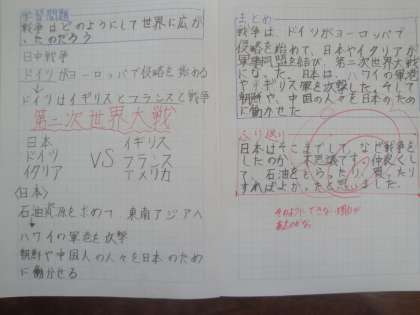 学習問題
戦争はどのようにして世界に広が
ったのだろう
日中戦争
ドイツがヨーロッパで侵略を始める
↓
ドイツはイギリスとフランスと戦争
第二次世界大戦
日本 イギリス
ドイツ VS フランス
イタリア アメリカ
〈日本〉
石油資源を求めて 東南アジアへ
ハワイの軍港を攻撃
朝鮮や中国人の人々を日本のため
に働かせる
まとめ
戦争は、ドイツがヨーロッパで
侵略を始めて、日本やイタリアが
軍事同盟を結び、第二次世界大戦
になった。日本は、ハワイの軍港
やイギリス軍を攻撃した。そして
朝鮮や、中国の人々を日本のため
に働かせた
ふり返り
日本はそこまでして、なぜ戦争を
したのか、不思議です。仲良くし
て、石油をもらったり、買ったり
すればよかったと思いました。
そのようにできない理由が
あるのかな。